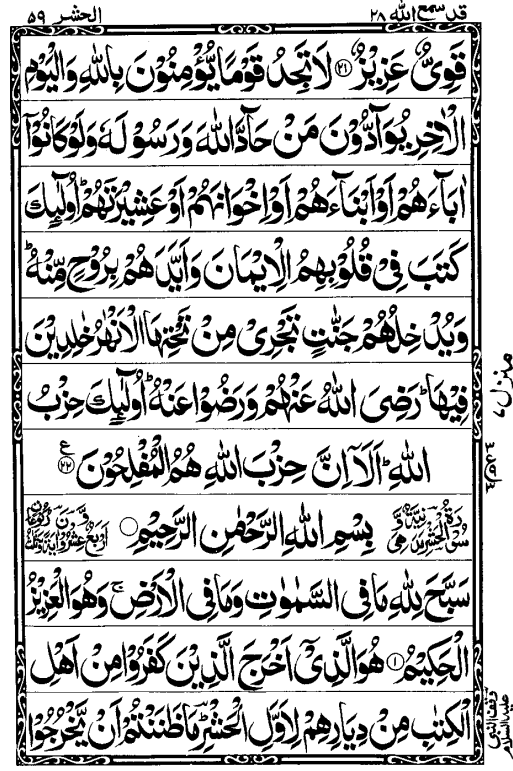 قد سمع الله ۲۸
الحشر ۵۹
قَوِىٌّ عَزِيْزٌ ﴿۲۱﴾ لَا تَجِدُ قَوْمًا يُّؤْمِنُوْنَ بِاللّٰهِ وَالْيَوْمِ
الْاٰخِرِ يُوَآدُّوْنَ مَنْ حَآدَّ اللّٰهَ وَرَسُوْلَهٗ وَلَوْ كَانُوْٓا
اٰبَآءَهُمْ اَوْ اَبْنَآءَهُمْ اَوْ اِخْوَانَهُمْ اَوْ عَشِيْرَتَهُمْ ؕ اُولٰٓئِكَ
كَتَبَ فِىْ قُلُوْبِهِمُ الْاِيْمَانَ وَاَيَّدَهُمْ بِرُوْحٍ مِّنْهُ ؕ
وَيُدْخِلُهُمْ جَنّٰتٍ تَجْرِىْ مِنْ تَحْتِهَا الْاَنْهٰرُ خٰلِدِيْنَ
فِيْهَا ؕ رَضِىَ اللّٰهُ عَنْهُمْ وَرَضُوْا عَنْهُ ؕ اُولٰٓئِكَ حِزْبُ
اللّٰهِ ؕ اَلَآ اِنَّ حِزْبَ اللّٰهِ هُمُ الْمُفْلِحُوْنَ ﴿۲۲﴾ ع
بِسْمِ اللّٰهِ الرَّحْمٰنِ الرَّحِيْمِ
سَبَّحَ لِلّٰهِ مَا فِى السَّمٰوٰتِ وَمَا فِى الْاَرْضِ ۚ وَهُوَ الْعَزِيْزُ
الْحَكِيْمُ ﴿۱﴾ هُوَ الَّذِىْٓ اَخْرَجَ الَّذِيْنَ كَفَرُوْا مِنْ اَهْلِ
الْكِتٰبِ مِنْ دِيَارِهِمْ لِاَوَّلِ الْحَشْرِ ؕ مَا ظَنَنْتُمْ اَنْ يَّخْرُجُوْا
منزل ۷
وقف النبي عليه السلام